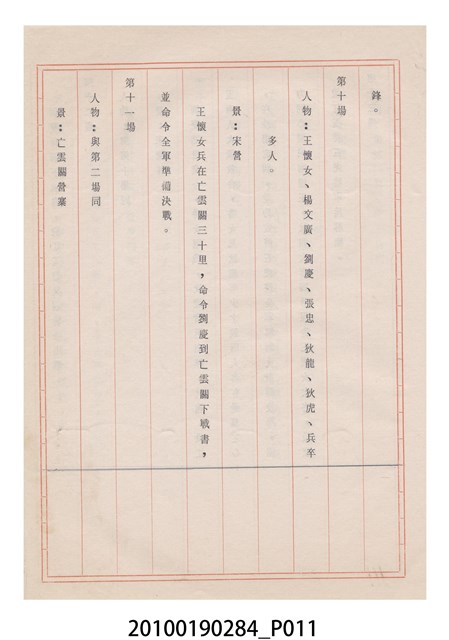 鋒。
第十場
人物：王懷女、楊文廣、劉慶、張忠、狄龍、狄虎、兵卒
多人。
景：宋營
王懷女兵在亡雲關三十里，命令劉慶到亡雲關下戰書，
並命令全軍準備決戰。
第十一場
人物：與第二場同
景：亡雲關營寨
20100190284_P011